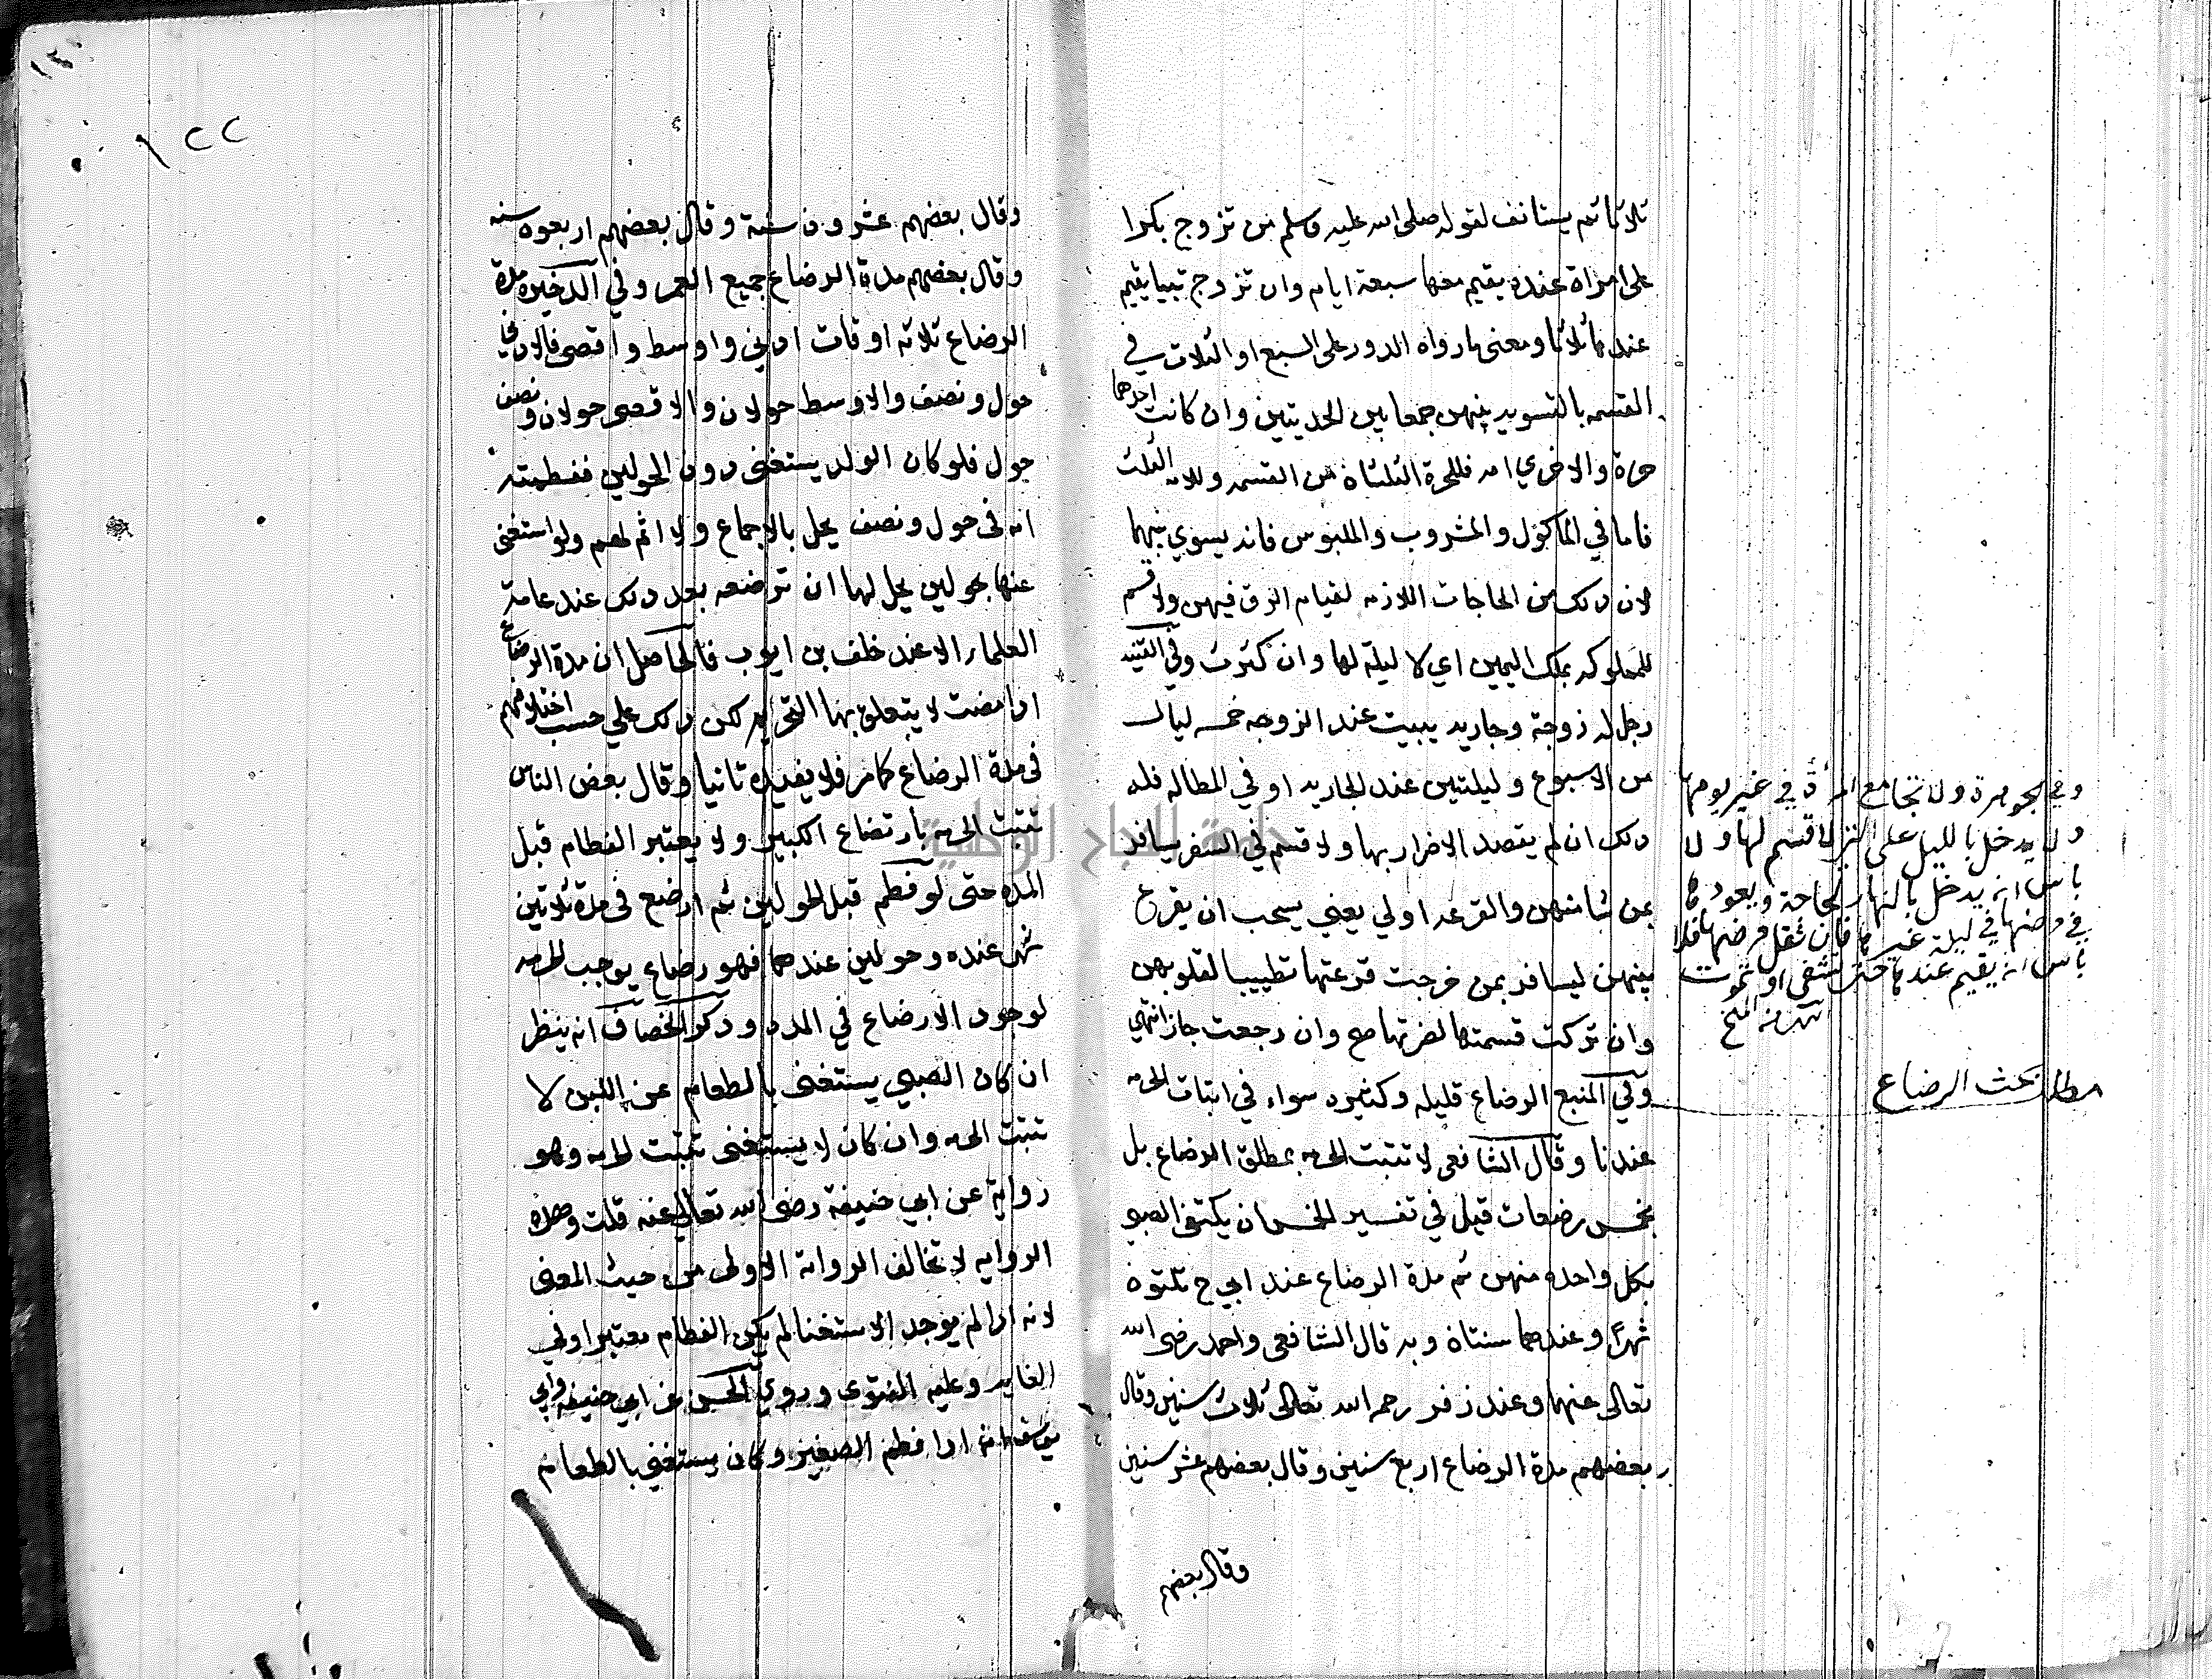 ثلاثا ثم يستانف لقوله صلى الله عليه وسلم من تزوج بكرا
على امراة عنده يقيم معها سبعة ايام وان تزوج ثيبا يقيم
عندها ثلاثا ومعنى ما رواه الدور على السبع او الثلاث في
القسمه بالتسويه بينهن جمعا بين الحديثين وان كانت احدهما
حرة والاخري امه فللحرة الثلثان من القسمه وللامه الثلث
فاما في الماكول والمشروب والملبوس فانه يسوي بينهما
لان ذلك من الحاجات اللازمه لقيام الرق فيهن ولا قسم
للمملوكه بملك اليمين اي لا ليلة لها وان كثرت وفي القنيه
رجل له زوجة وجاريه يبيت عند الزوجه خمسه ليال
من الاسبوع وليلتين عند الجاريه او في المطاله فله
ذلك ان لم يقصد الاضرار بها ولا قسم في السفر يسافر
بمن شا منهن والقرعه اولي يعني يستحب ان يقرع
بينهن ليسافر بمن خرجت قرعتها تطييبا لقلوبهن
وان تركت قسمتها لضرتها صح وان رجعت جاز انتهي
وفي المنبع الرضاع قليله وكثيره سواء في اثبات الحرمه
عندنا وقال الشافعى لا تثبت الحرمه بمطلق الرضاع بل
بخمس رضعات قيل في تفسير الخمس ان يكتفى الصبي
بكل واحده منهن ثم مدة الرضاع عند ابي ح ثلثون
شهرا وعندهما سنتان وبه قال الشافعى واحمد رضى الله
تعالى عنهما وعند زفر رحمه الله تعالى ثلاث سنين وقال
بعضهم مدة الرضاع اربع سنين وقال بعضهم عشر سنين
وقال بعضهم
وفي الجوهرة ولا يجامع المرأة في غير يومها
ولا يدخل بالليل على التي لا قسم لها ولا
باس انه يدخل بالنهار لحاجة ويعودها
في مرضها في ليلة غيرها فان ثقل مرضها فلا
باس انه يقيم عندها حتى تشفى او تموت
انتهى منه
مطلب بحث الرضاع
١٢٢
وقال بعضهم عشرون سنة وقال بعضهم اربعون سنه
وقال بعضهم مدة الرضاع جميع العمر وفي الذخيره مدة
الرضاع ثلاثه اوقات ادنى واوسط واقصى فالادنى
حول ونصف والاوسط حولان والاقصى حولان ونصف
حول فلو كان الولد يستغنى دون الحولين ففطمته
امه فى حول ونصف يحل بالاجماع ولا اثم لهم ولو استغنى
عنها بحولين يحل لها ان ترضعه بعد ذلك عند عامة
العلماء الا عند خلف بن ايوب فالحاصل ان مدة الرضاع
اذا مضت لا يتعلق بها التحريم لكن ذلك علي حسب اختلافهم
فى مدة الرضاع كما مر فلا يفيده ثانيا وقال بعض الناس
تثبت الحرمه بارتضاع الكبير ولا يعتبر الفطام قبل
المده حتى لو فطم قبل الحولين ثم ارضع فى مدة ثلاثين
شهرا عنده وحولين عندهما فهو رضاع يوجب الحرمه
لوجود الارضاع في المده وذكر الخصاف انه ينظر
ان كان الصبي يستغنى بالطعام عن اللبن لا
تثبت الحرمه وان كان لا يستغنى تثبت الحرمه وهو
رواية عن ابي حنيفة رضى الله تعالى عنه قلت وهذه
الروايه لا تخالف الرواية الاولى من حيث المعنى
لانه اذا لم يوجد الاستغنا لم يكن الفطام معتبرا وفي
الغايه وعليه الفتوى وروي الحسن عن ابي حنيفه وابي
يوسف انه اذا فطم الصغير وكان يستغني بالطعام